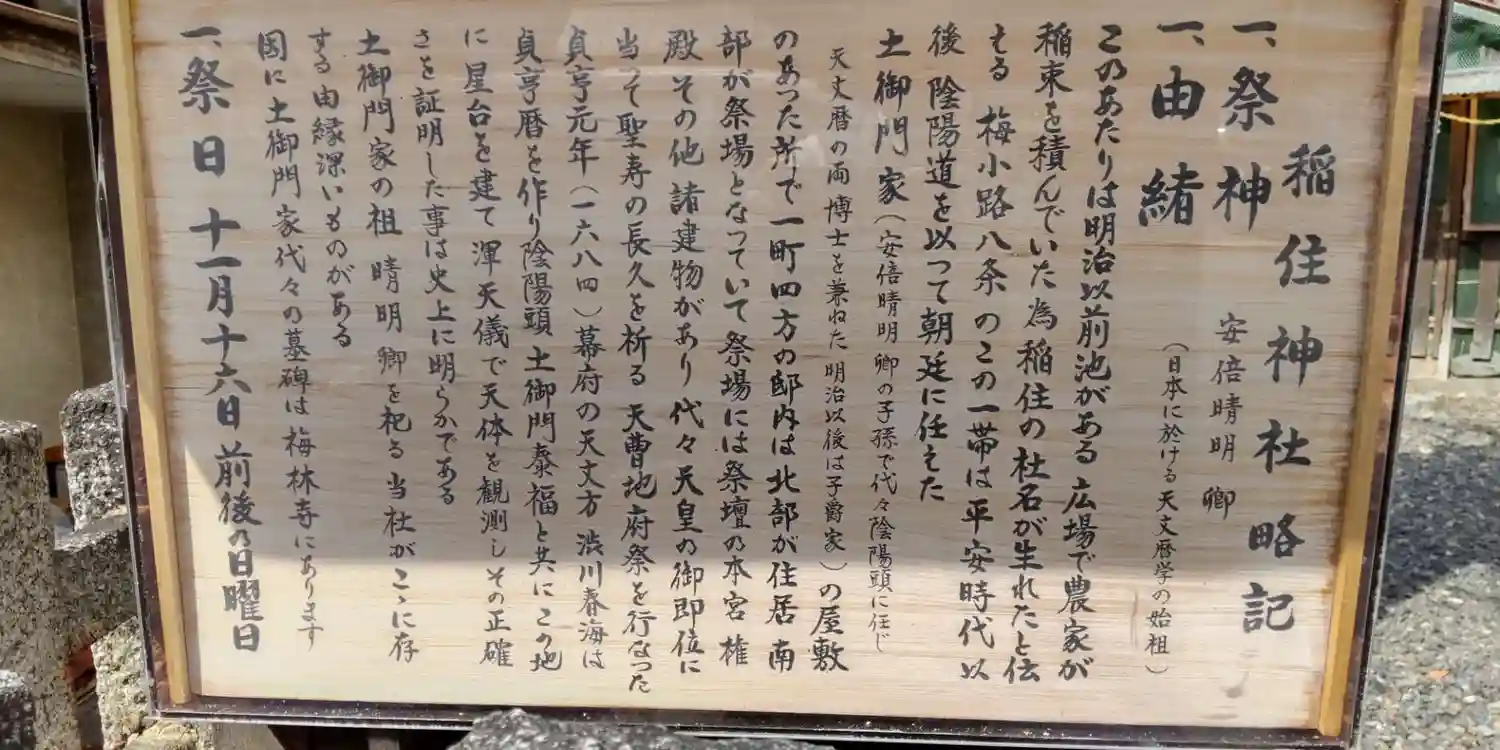 稲住神社略記
一、祭神 安倍晴明卿
(日本に於ける天文暦学の始祖)
一、由緒
このあたりは明治以前池がある広場で農家が
稲束を積んでいた為稲住の社名が生れたと伝
える 梅小路八条のこの一帯は平安時代以
後 陰陽道を以って朝廷に仕えた
土御門家(安倍晴明卿の子孫で代々陰陽頭に任じ
天文暦の両博士を兼ねた 明治以後は子爵家)の屋敷
のあった所で一町四方の邸内は北部が住居 南
部が祭場となっていて祭場には祭壇の本宮 権
殿 その他 諸建物があり 代々天皇の御即位に
当って聖寿の長久を祈る 天曹地府祭を行なった
貞享元年(一六八四)幕府の天文方 渋川春海は
貞享暦を作り陰陽頭 土御門泰福と共にこの地
に星台を建て 渾天儀で天体を観測しその正確
さを証明した事は史上に明らかである
土御門家の祖 晴明卿を祀る 当社がこゝに存
する由縁深いものがある
因に土御門家代々の墓碑は梅林寺にあります
一、祭日 十一月十六日前後の日曜日